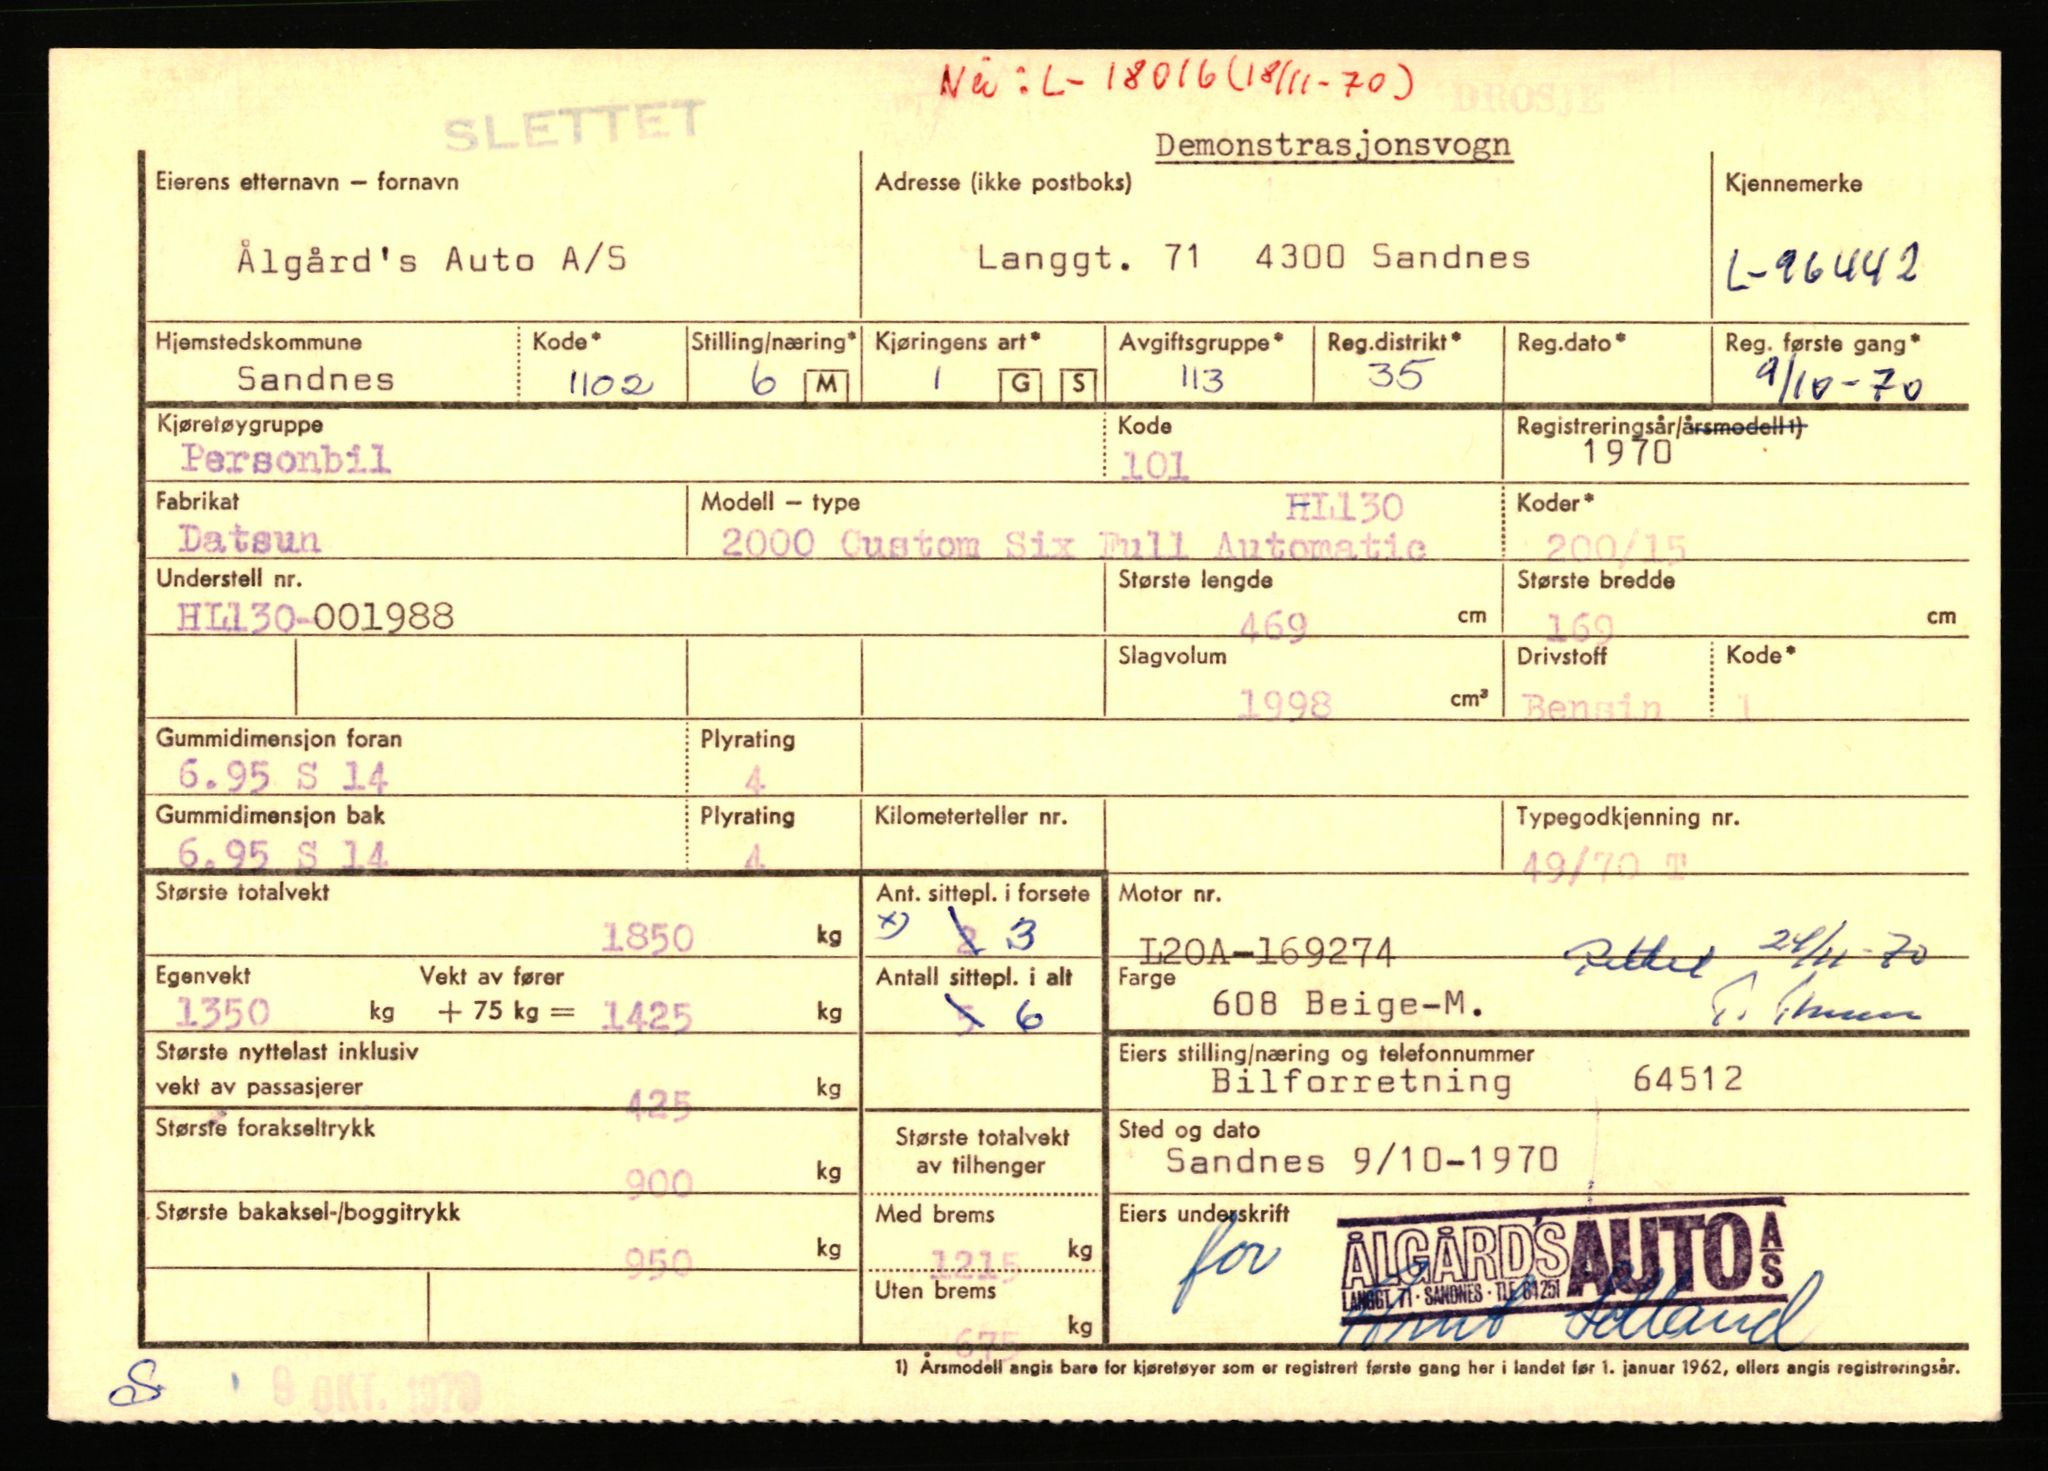 Nå: L-18016 (18/11-70)
DROSJE
SLETTET
Demonstrasjonsvogn
Eierens etternavn – fornavn
Adresse (ikke postboks)
Kjennemerke
Ålgård's Auto A/S
Langgt. 71 4300 Sandnes
L-96442
Hjemstedskommune Kode* Stilling/næring* Kjøringens art* Avgiftsgruppe* Reg.distrikt* Reg.dato* Reg. første gang*
Sandnes 1102 6 M 1 G S 113 35 9/10-70
Kjøretøygruppe Kode Registreringsår/årsmodell 1)
Personbil 101 1970
Fabrikat Modell – type HL130 Koder*
Datsun 2000 Custom Six Full Automatic 200/15
Understell nr. Største lengde Største bredde
HL130-001988 469 cm 169 cm
Slagvolum Drivstoff Kode*
1998 cm³ Bensin 1
Gummidimensjon foran Plyrating
6.95 S 14 4
Gummidimensjon bak Plyrating Kilometerteller nr. Typegodkjenning nr.
6.95 S 14 4 49/70 T
Største totalvekt Ant. sittepl. i forsete Motor nr.
1850 kg x) 2 3 L20A-169274 Rettet 24/11-70
Egenvekt Vekt av fører Antall sittepl. i alt Farge
1350 kg + 75 kg = 1425 kg 5 6 608 Beige-M.
Største nyttelast inklusiv Eiers stilling/næring og telefonnummer
vekt av passasjerer 425 kg Bilforretning 64512
Største forakseltrykk Største totalvekt Sted og dato
900 kg av tilhenger Sandnes 9/10-1970
Største bakaksel-/boggitrykk Med brems Eiers underskrift
950 kg 1215 kg for ÅLGÅRD'S AUTO A/S
LANGGT. 71 · SANDNES · TLF. 64251
Uten brems
675 kg
1) Årsmodell angis bare for kjøretøyer som er registrert første gang her i landet før 1. januar 1962, ellers angis registreringsår.
S 9 OKT. 1970